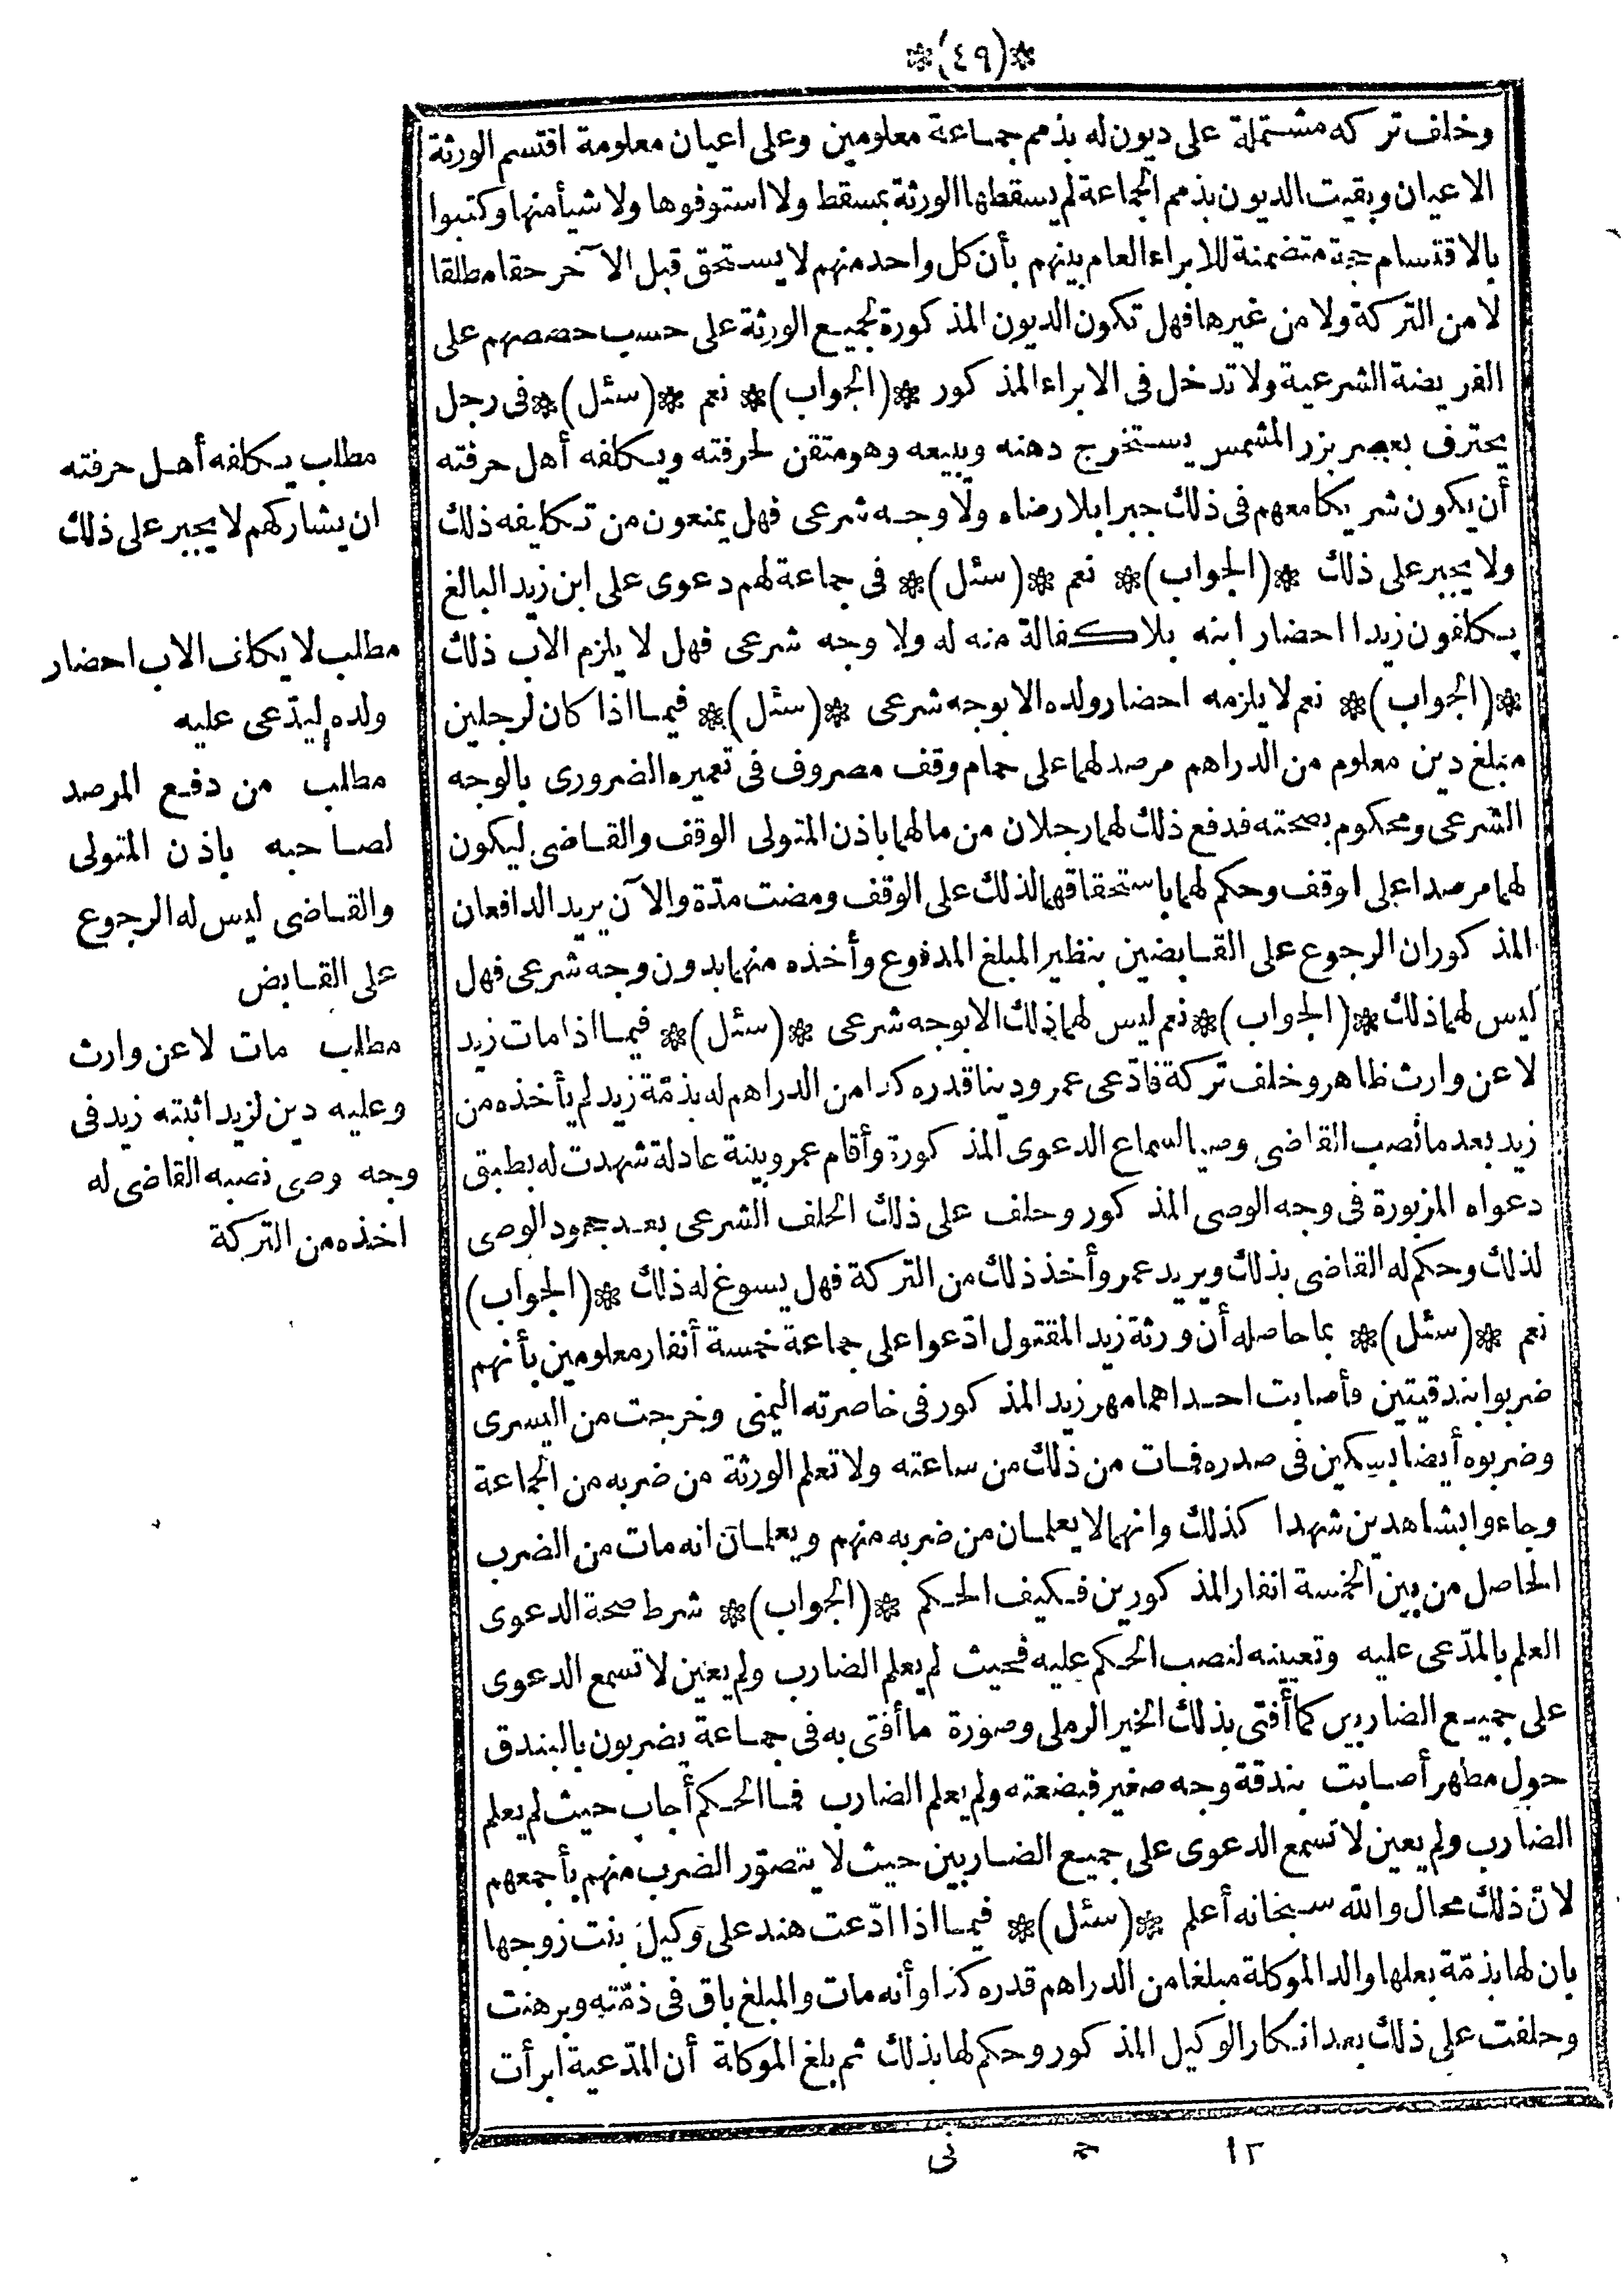 *(٤٩)*
وخلف تركه مشتملة على ديون له بذمم جماعة معلومين وعلى اعيان معلومة اقتسم الورثة
الاعيان وبقيت الديون بذمم الجماعة لم يسقطها الورثة بمسقط ولا استوفوها ولا شيأ منها وكتبوا
بالاقتسام حجة متضمنة للابراء العام بينهم بأن كل واحد منهم لا يستحق قبل الآخر حقا مطلقا
لا من التركة ولا من غيرها فهل تكون الديون المذكورة لجميع الورثة على حسب حصصهم على
الفريضة الشرعية ولا تدخل فى الابراء المذكور *(الجواب)* نعم *(سئل)* فى رجل
يحترف بعصر بزر المشمس يستخرج دهنه ويبيعه وهو متقن لحرفته ويكلفه أهل حرفته
أن يكون شريكا معهم فى ذلك جبرا بلا رضاه ولا وجه شرعى فهل يمنعون من تكليفه ذلك
ولا يجبر على ذلك *(الجواب)* نعم *(سئل)* فى جماعة لهم دعوى على ابن زيد البالغ
يكلفون زيدا احضار ابنه بلا كفالة منه له ولا وجه شرعى فهل لا يلزم الاب ذلك
*(الجواب)* نعم لا يلزمه احضار ولده الا بوجه شرعى *(سئل)* فيما اذا كان لرجلين
مبلغ دين معلوم من الدراهم مرصد لهما على حمام وقف مصروف فى تعميره الضرورى بالوجه
الشرعى ومحكوم بصحته فدفع ذلك لهما رجلان من مالهما باذن المتولى الوقف والقاضى ليكون
لهما مرصدا على اوقف وحكم لهما باستحقاقهما لذلك على الوقف ومضت مدّة والآن يريد الدافعان
المذكوران الرجوع على القابضين بنظير المبلغ المدفوع وأخذه منهما بدون وجه شرعى فهل
ليس لهما ذلك *(الجواب)* نعم ليس لهما ذلك الا بوجه شرعى *(سئل)* فيما اذا مات زيد
لا عن وارث ظاهر وخلف تركة فادّعى عمرو دينا قدره كذا من الدراهم له بذمّة زيد لم يأخذه من
زيد بعد ما نصب القاضى وصيا لسماع الدعوى المذكورة وأقام عمرو بينة عادلة شهدت له بطبق
دعواه المزبورة فى وجه الوصى المذكور وحلف على ذلك الحلف الشرعى بعد جحود الوصى
لذلك وحكم له القاضى بذلك ويريد عمرو أخذ ذلك من التركة فهل يسوغ له ذلك *(الجواب)
نعم *(سئل)* بما حاصله أن ورثة زيد المقتول ادّعوا على جماعة خمسة أنفار معلومين بأنهم
ضربوا بندقيتين وأصابت احداهما مهر زيد المذكور فى خاصرته اليمنى وخرجت من اليسرى
وضربوه أيضا بسكين فى صدره فمات من ذلك من ساعته ولا تعلم الورثة من ضربه من الجماعة
وجاءوا بشاهدين شهدا كذلك وانهما لا يعلمان من ضربه منهم ويعلمان انه مات من الضرب
الحاصل من بين الخمسة انفار المذكورين فكيف الحكم *(الجواب)* شرط صحة الدعوى
العلم بالمدّعى عليه وتعيينه لنصب الحكم عليه فحيث لم يعلم الضارب ولم يعين لا تسمع الدعوى
على جميع الضاربين كما أفتى بذلك الخير الرملى وصورة ما أفتى به فى جماعة يضربون بالبندق
حول مطهر أصابت بندقة وجه صغير فبضعته ولم يعلم الضارب فما الحكم أجاب حيث لم يعلم
الضارب ولم يعين لا تسمع الدعوى على جميع الضاربين حيث لا يتصوّر الضرب منهم بأجمعهم
لانّ ذلك محال والله سبحانه أعلم *(سئل)* فيما اذا ادّعت هند على وكيل بنت زوجها
بان لها بذمّة بعلها والد الموكلة مبلغا من الدراهم قدره كذا وأنه مات والمبلغ باق فى ذمّته وبرهنت
وحلفت على ذلك بعد انكار الوكيل المذكور وحكم لها بذلك ثم بلغ الموكلة أن المدّعية ابرأت
مطلب يكلفه أهل حرفته
ان يشاركهم لا يجبر على ذلك
مطلب لا يكلف الاب احضار
ولده ليدّعى عليه
مطلب من دفع المرصد
لصاحبه باذن المتولى
والقاضى ليس له الرجوع
على القابض
مطلب مات لا عن وارث
وعليه دين لزيد اثبته زيد فى
وجه وصى نصبه القاضى له
اخذه من التركة
١٢ ح نى